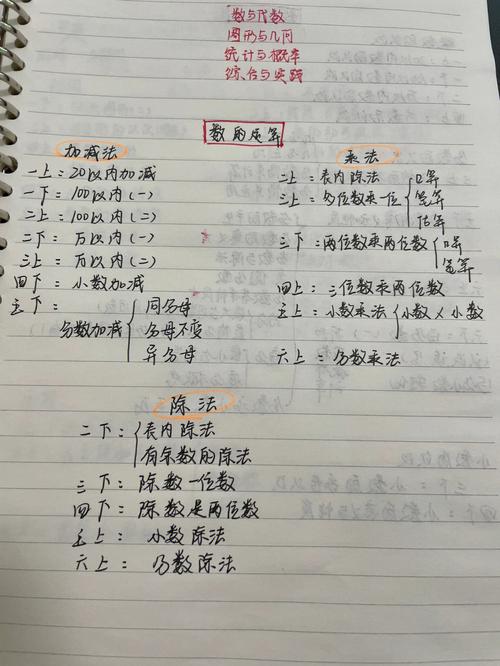 数与代数
图形与几何
统计与概率
综合与实践
数的运算
加减法
一上：20以内加减
一下：100以内(一)
二上：100以内(二)
二下：万以内(一)
三上：万以内(二)
四下：小数加减
五下：
分数加减
同分母
分母不变
异分母
乘法
二上：表内除法
口算
三上：多位数乘一位
笔算
估算
三下：两位数乘两位数
口算
笔算
四上：三位数乘两位数
五上：小数乘法
小数×小数
六上：分数乘法
除法
二下：表内除法
有余数的除法
三下：除数一位数
四下：除数是两位数
五上：小数除法
六上：分数除法